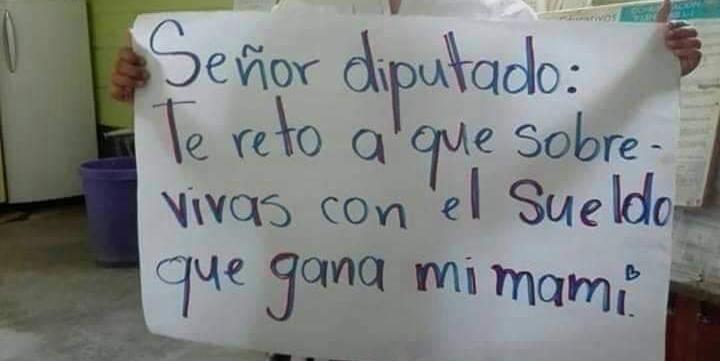 Señor diputado:
Te reto a que sobre-
vivas con el sueldo
que gana mi mami.